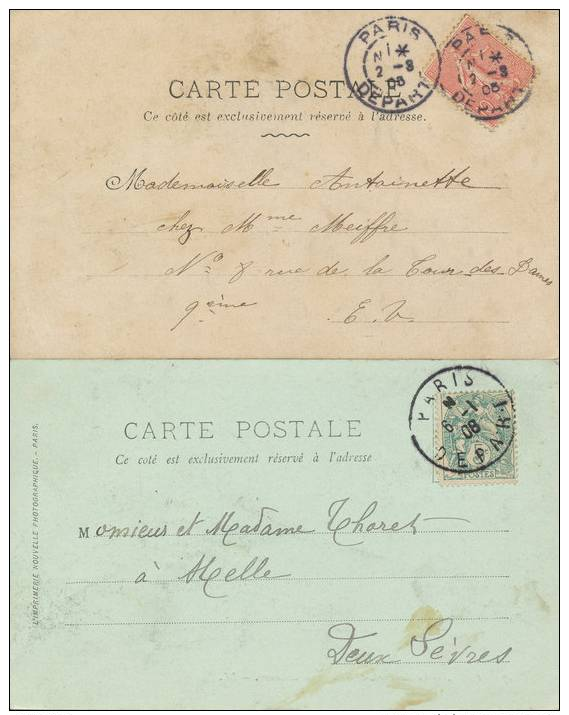 PARIS
N 1 *
2 -3
05
DEPART
CARTE POSTALE
Ce côté est exclusivement réservé à l'adresse.
Mademoiselle Antoinette
chez Mme Meiffre
No 8 rue de la Tour-des-Dames
9eime
E. V.
PARIS
N
6 -1
08
DEPART
POSTES
CARTE POSTALE
Ce coté est exclusivement réservé à l'adresse
Monsieur et Madame Thoret
à Melle
Deux Sèvres
L'IMPRIMERIE NOUVELLE PHOTOGRAPHIQUE. - PARIS.